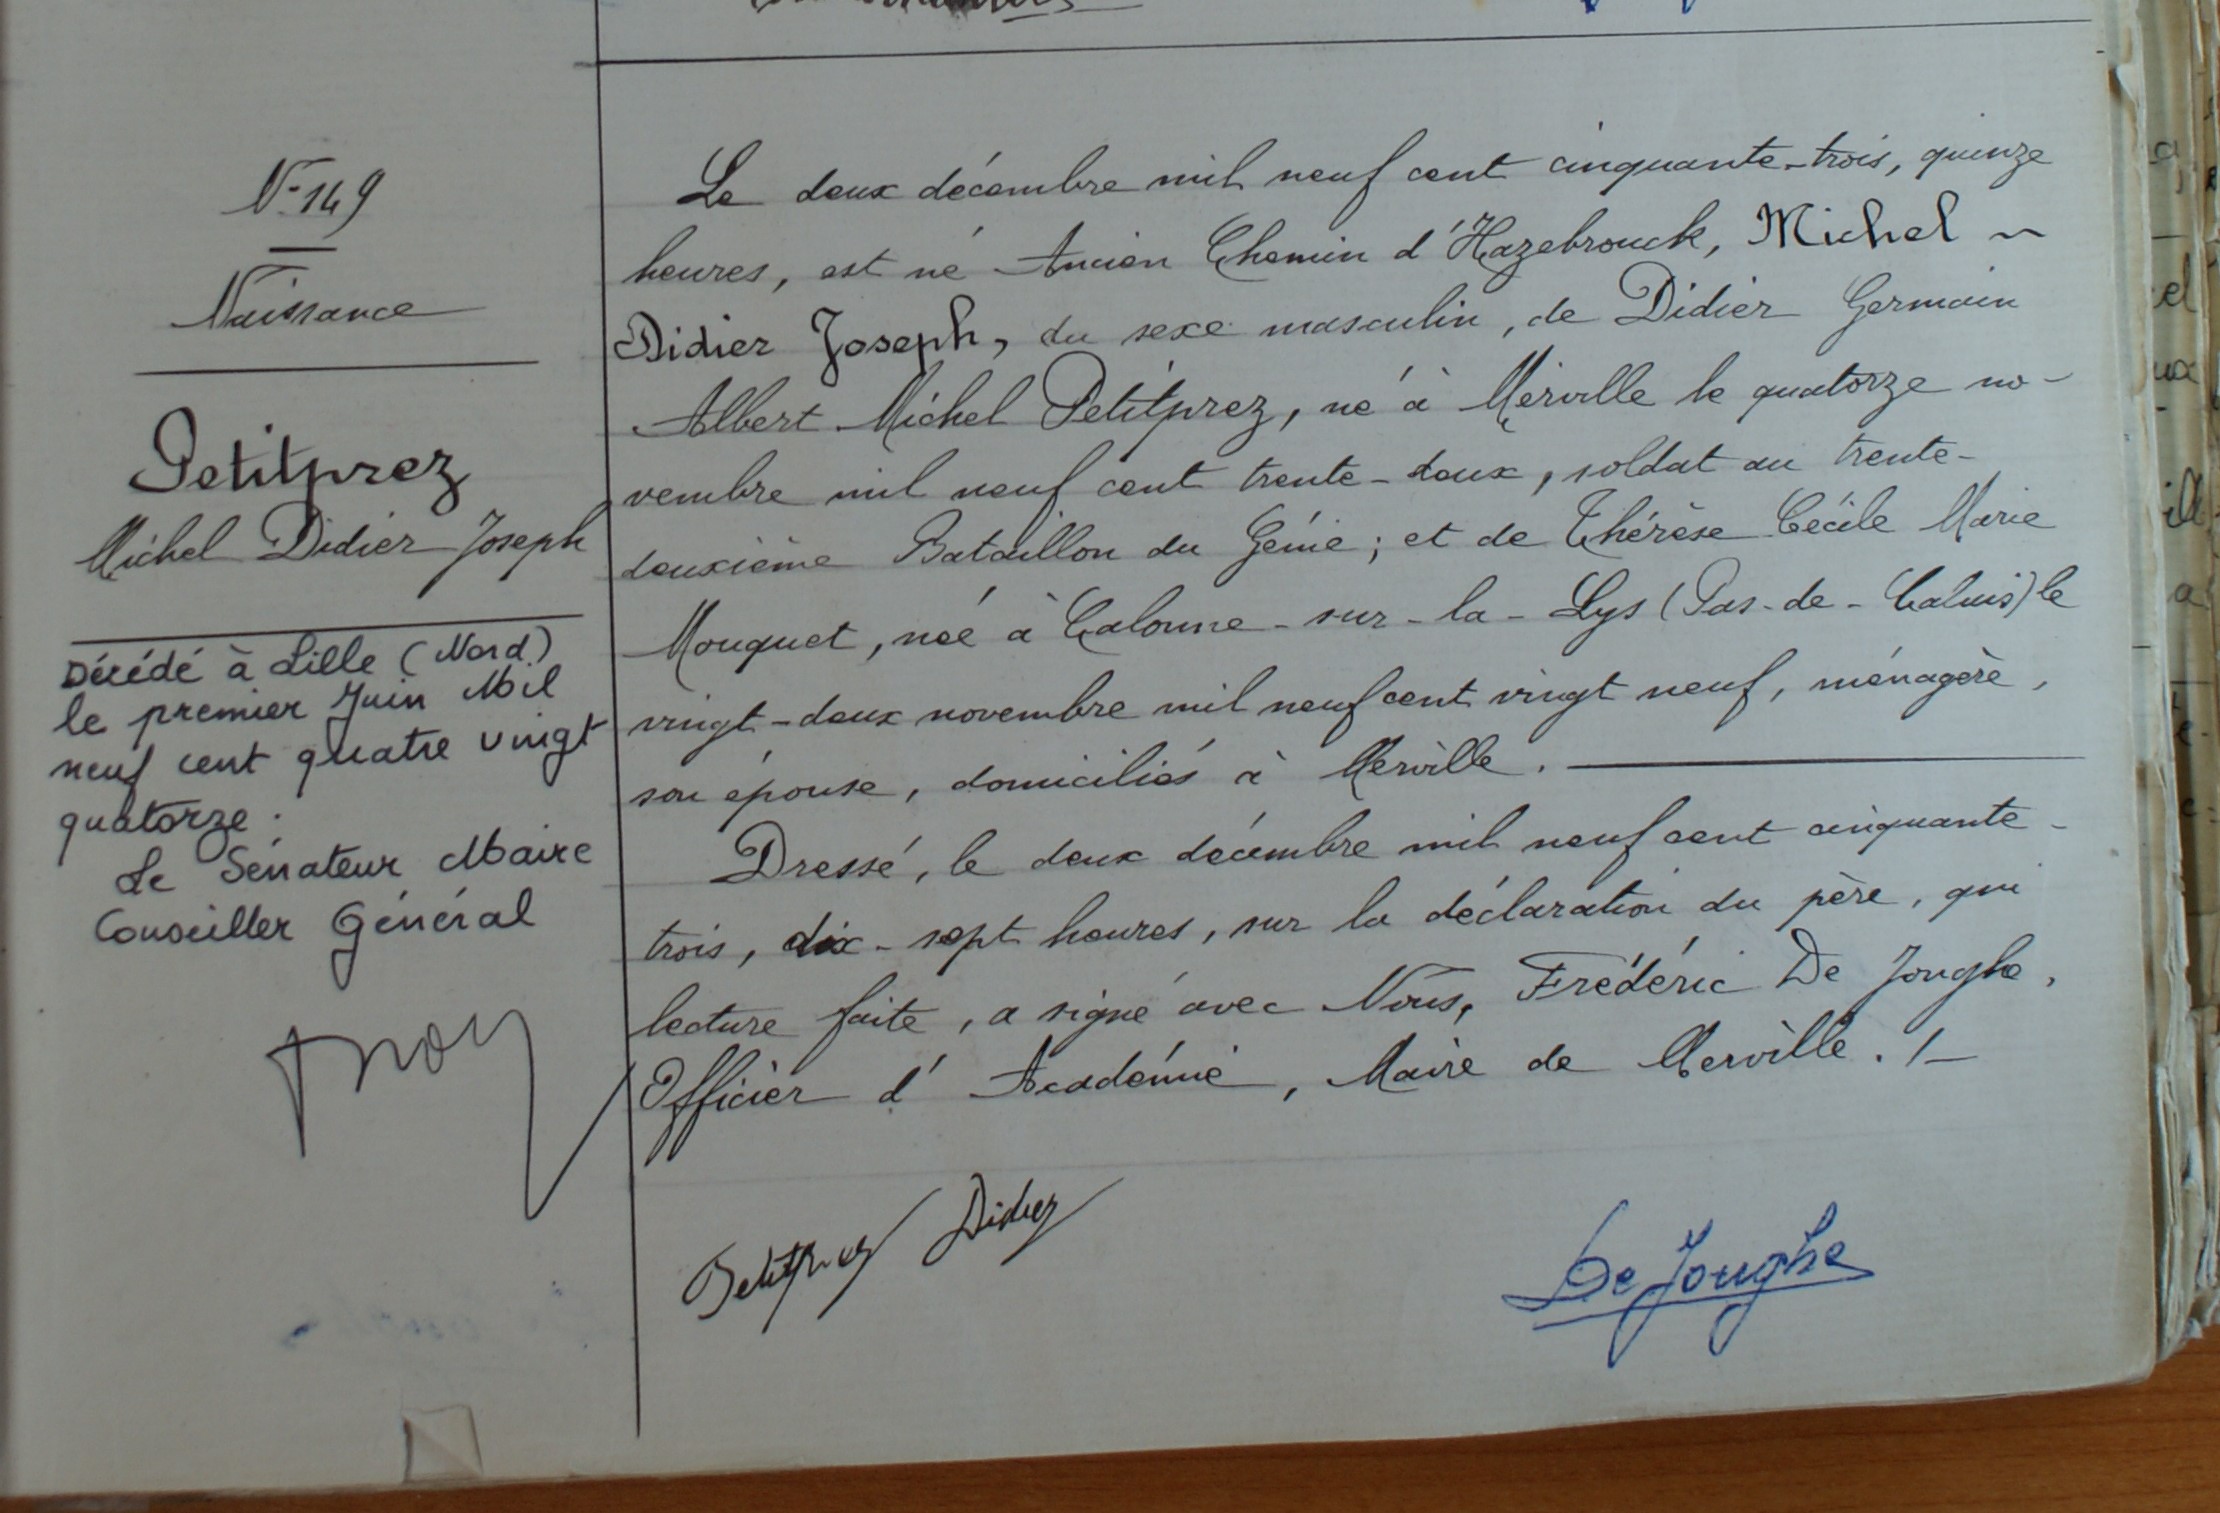 N° 149
Naissance
Petitprez
Michel Didier Joseph
Décédé à Lille (Nord)
le premier Juin Mil
neuf cent quatre vingt
quatorze.
Le Sénateur Maire
Conseiller Général
Le deux décembre mil neuf cent cinquante-trois, quinze
heures, est né Ancien Chemin d'Hazebrouck, Michel ~
Didier Joseph, du sexe masculin, de Didier Germain
Albert Michel Petitprez, né à Merville le quatorze no-
vembre mil neuf cent trente-deux, soldat au trente-
deuxième Bataillon du Génie; et de Thérèse Cécile Marie
Mouquet, née à Calonne-sur-la-Lys (Pas-de-Calais) le
vingt-deux novembre mil neuf cent vingt neuf, ménagère,
son épouse, domiciliés à Merville.
Dressé, le deux décembre mil neuf cent cinquante-
trois, dix-sept heures, sur la déclaration du père, qui
lecture faite, a signé avec Nous, Frédéric De Jonghe,
Officier d'Académie, Maire de Merville. /-
Petitprez Didier
De Jonghe